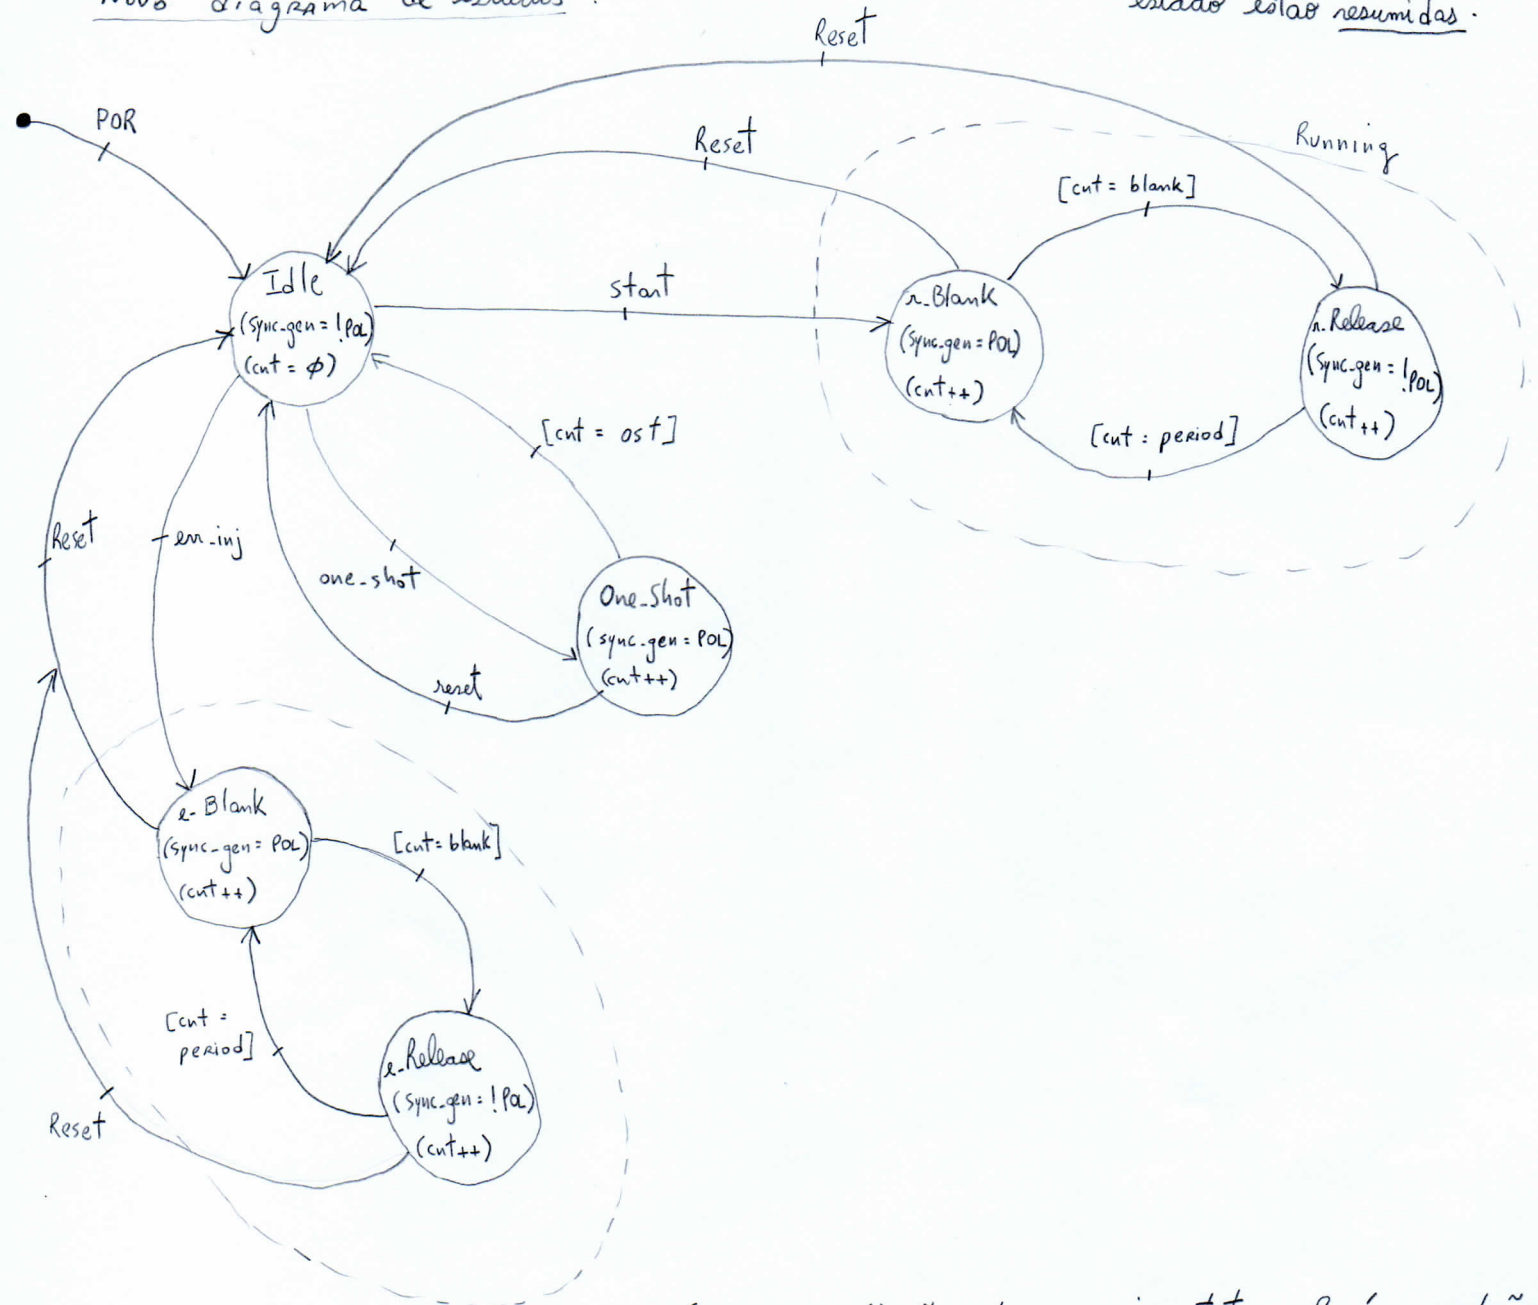 Novo diagrama de estados:
estado estão resumidas.
Reset
POR
Reset
Running
[cnt = blank]
Idle
(sync_gen = !POL)
(cnt = ϕ)
start
r_Blank
(sync_gen = POL)
(cnt++)
r_Release
(sync_gen = !POL)
(cnt++)
[cnt = period]
[cnt = ost]
Reset
err_inj
one_shot
One_Shot
(sync_gen = POL)
(cnt++)
reset
e_Blank
(sync_gen = POL)
(cnt++)
[cnt = blank]
[cnt =
period]
e_Release
(sync_gen = !POL)
(cnt++)
Reset